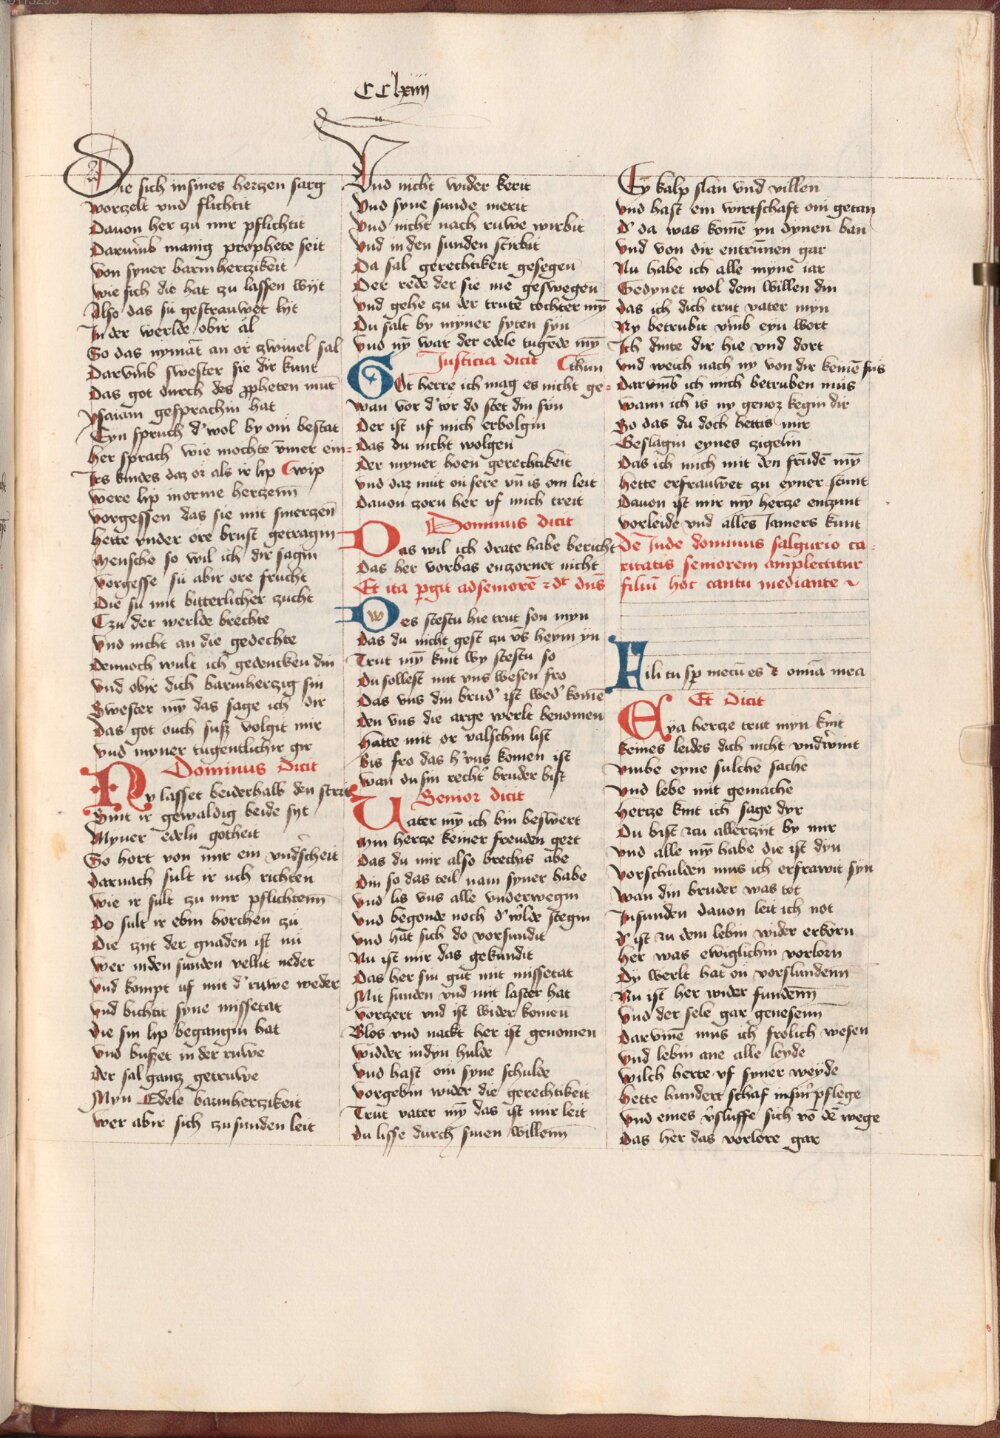 CClxiiij
Die sich in sines herczen sarg
worczelt vnd flichtit
Dauon her zu mir pflichtit
Darumb manig prophete seit
von syner barmherczikeit
wie sich die hat zu lassen wyt
Also das su gestrauwet lyt
In der werlde obir al
So das nymāt an or zwiuel sal
Darvmb swester sie dir kunt
Das got durch des ꝓpheten mūt
ysaiam gesprachin hat
Eyn spruch d' wol by om bestat
her sprach wie mochte vm̄er ein
Irs kindes daz or als ir lip wip
were lip worme herczenn
vorgessen das sie mit smerczen
hette vnder ore brust getragin
Mensche so wil ich dir sagin
vorgesse su abir ore frucht
Die su mit bitterlicher zucht
Czu der werlde brechte
vnd nicht an die gedechte
Dennoch wult ich gedencken din
vnd obir dich barmherczig sin
Swester my das sage ich dir
Das got ouch suß volgit mir
vnd myner tugentlichir gir
Dominus dicit
Ny lasset beiderhalb den strit
Sint ir gewaldig beide sijt
Myner edeln gotheit
So hort von mir ein vndscheit
darnach sult ir uch richten
wie ir sult zu mir pflichtenn
Do sult ir ebin horchen zu
Die zijt der gnaden ist nu
wer in den sunden vellit neder
vnd kompt uf mit d' ruwe weder
vnd bichtit syne missetat
die sin lip begangin hat
vnd bußet in der ruwe
Der sal gancz getruwe
Myn Edele barmherczikeit
wer abir sich zu sunden leit
Vnd nicht wider kerit
vnd syne sunde merit
vnd nicht nach ruwe wirbit
vnd in den sunden stirbit
Da sal gerechtikeit gesegen
Der rede der sie nie geswegen
vnd gehe zu der trute tochter my̅
Du salt by myner syten syn
vnd ny̅ war der edele tugēde my̅
Justicia dicit thun
Got herre ich mag es nicht ge=
wan vor d' tor do stet din syn
Der ist uf mich erbolgin
Das du nicht wolgen
Der myner hoen gerechtikeit
vnd daz mut on sere vn̄ is om leit
dauon zorn her vf mich treit
Dominus dicit
Das wil ich drate habe bericht
Das her vorbas enzornet nicht
Et ita pgit ad seniorē ⁊ dt dn̄s
Wes stestu hie trut son myn
das du nicht gest zu vs heym yn
Trut my̅ kint wy stestu so
Du sollest mit vns wesen fro
Das vns din brud' ist wed' kome
den vns die arge werlt benomen
hatte mit or valschin list
bis fro das h' vns komen ist
wan du sin recht' bruder bist
Senior dicit
Vater my̅ ich bin beswert
Min hercze keiner freuden gert
Das du mir also brechis abe
Din so das teil nam syner habe
vnd lis vns alle vnderwegin
vnd begonde noch d' wilde stegin
vnd hat sich do vorsundit
Nu ist mir das gekundit
Das her sin gut mit missetat
Mit sunden vnd mit laster hat
vorczert vnd ist wider komen
Blos vnd nackt her ist genomen
widder in dyn hulde
vnd hast om syne schulde
vorgebin wider die gerechtikeit
Trut vater my̅ das ist mir leit
du lisse durch sinen willenn
Ey kalp slan vnd villen
vnd hast em wirtschaft om getan
d' da was kome yn dynen ban
vnd von dir entrunnen gar
Nu habe ich alle myne iar
Gedynet wol dem willen din
das ich dich trut vater myn
Ny betrubit vmb eyn wort
Ich dinte dir hie vnd dort
vnd weich nach ny von dir keinē fus
darvmb ich mich betruben mus
wann ich is ny genoz kegin dir
So das du doch hettis mir
Geslagin eynes zigelin
Das ich mich mit den frūdē my̅
hette erfrauwet zu eyner stunt
dauon ist mir my̅ hercze enzunt
vorleide vnd alles Jamers kunt
De Inde dominus salgurio ca=
ritatis seniorem amplectitur
filiū hoc cantu mediante
Fili tu sp̄ mecū es ⁊ omīa mea
Et dicit
Eya hercze trut myn kint
keines leides dich nicht vndirwint
vmbe eyne sulche sache
vnd lebe mit gemache
hercze kint ich sage dyr
Du bist zcu allerzijt by mir
vnd alle my̅ habe die ist dyn
vorschulden mus ich erfrawit syn
wan din bruder was tot
In sunden dauon leit ich not
d' ist zu dem lebin wider erkorn
her was ewiglichin vorlorn
Dy werlt hat on vorslundenn
Nu ist her wider fundenn
vnd der sele gar genesenn
darvm̄e mus ich frolich wesen
vnd lebin ane alle leyde
wilch herte vf syner weyde
hette hundert schaf in sin' pflege
vnd eines v'sluffe sich vō dē wege
das her das vorlore gar